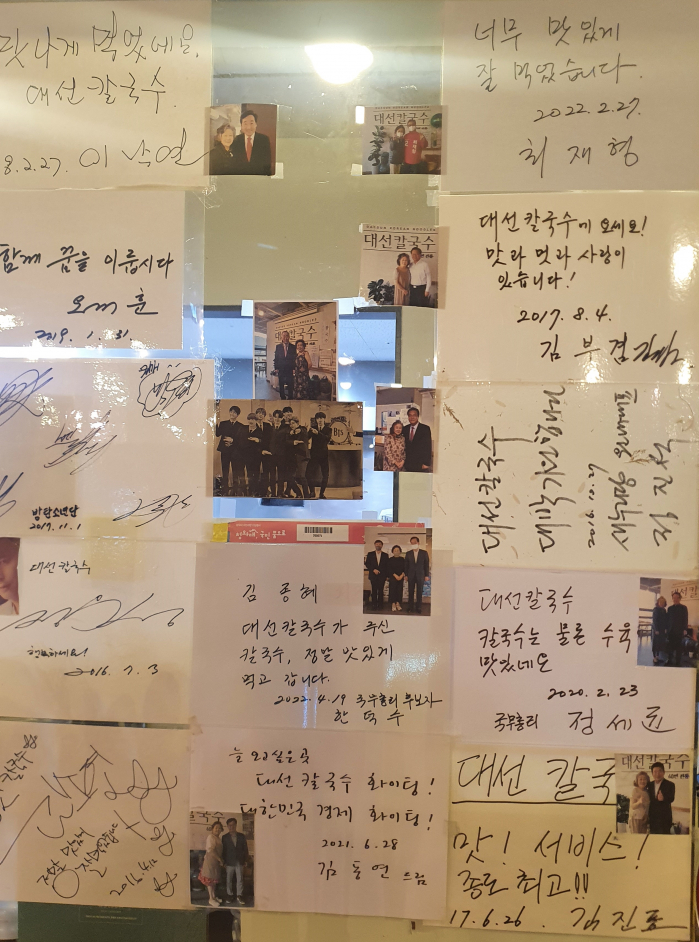 맛나게 먹었네요.
대선 칼국수.
8.2.27. 이낙연
너무 맛있게
잘 먹었습니다.
2022.2.27.
최재형
대선칼국수
대선칼국수
함께 꿈을 이룹시다
오세훈
2019. 1. 31.
대선칼국수에 오세요!
맛과 멋과 사랑이
있습니다!
2017. 8. 4.
김부겸
대선칼국수
BTS
방탄소년단
2017. 11. 1
대선칼국수
대선칼국수
2016. 7. 3
김종혜
대선칼국수가 주신
칼국수, 정말 맛있게
먹고 갑니다.
2022. 4. 19 국무총리 후보자
한덕수
대선칼국수
칼국수는 물론 수육
맛있네요
2020. 2. 23
국무총리 정세균
늘 오고싶은곳
대선 칼국수 화이팅!
대한민국 경제 화이팅!
2021. 6. 28
김동연 드림
대선 칼국
대선칼국수
맛! 서비스!
종로 최고!!
17. 6. 26. 김진표